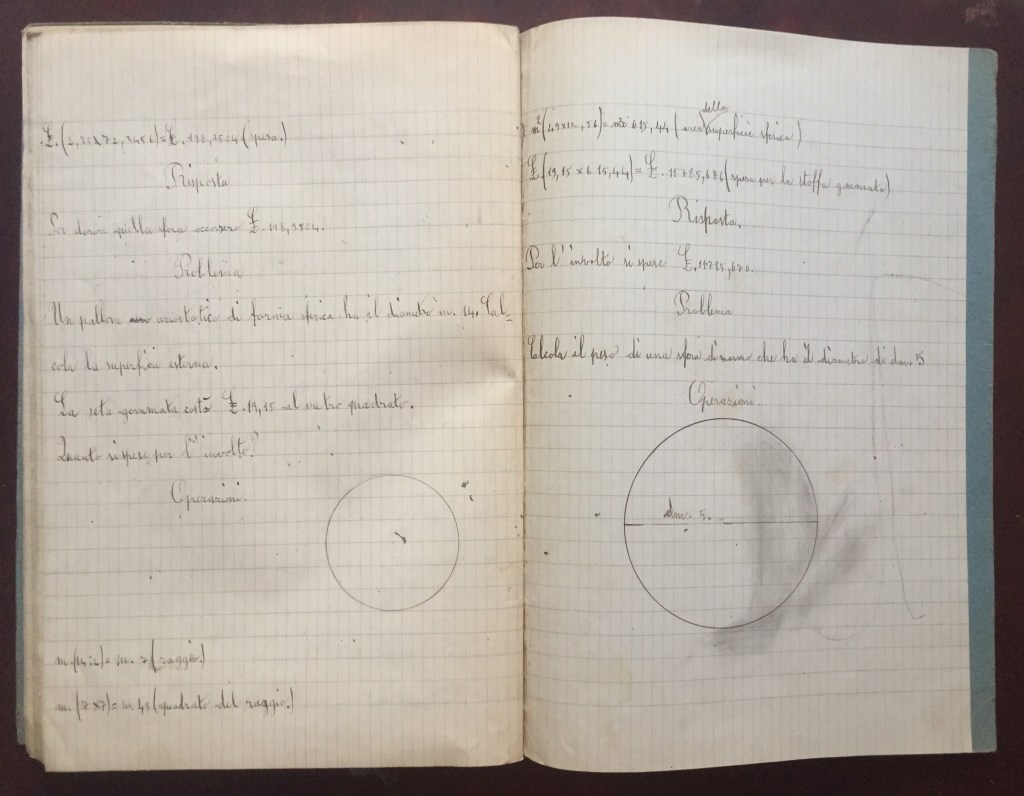 £.(2,75×72,3456)=£.198,9504.(spesa.)
Risposta
Per dorare quella sfera occorsero £.198,9504.
Problema
Un pallone aerostatico di forma sferica ha il diametro m. 14. Cal-
cola la superficie esterna.
La seta gommata costò £.19,15 al metro quadrato.
Quanto si spese per l'involto?
Operazioni.
m.(14:2)=m. 7(raggio.)
m.(7×7)=m. 49(quadrato del raggio.)
m²(49×12,56)=m² 615,44 (area della superficie sferica)
£.(19,15×615,44)=£. 11785,676(spesa per la stoffa gommata)
Risposta.
Per l'involto si spese £.11785,676.
Problema
Calcola il peso di una sfera di marmo che ha il diametro di dm. 5
Operazioni.
dm. 5.